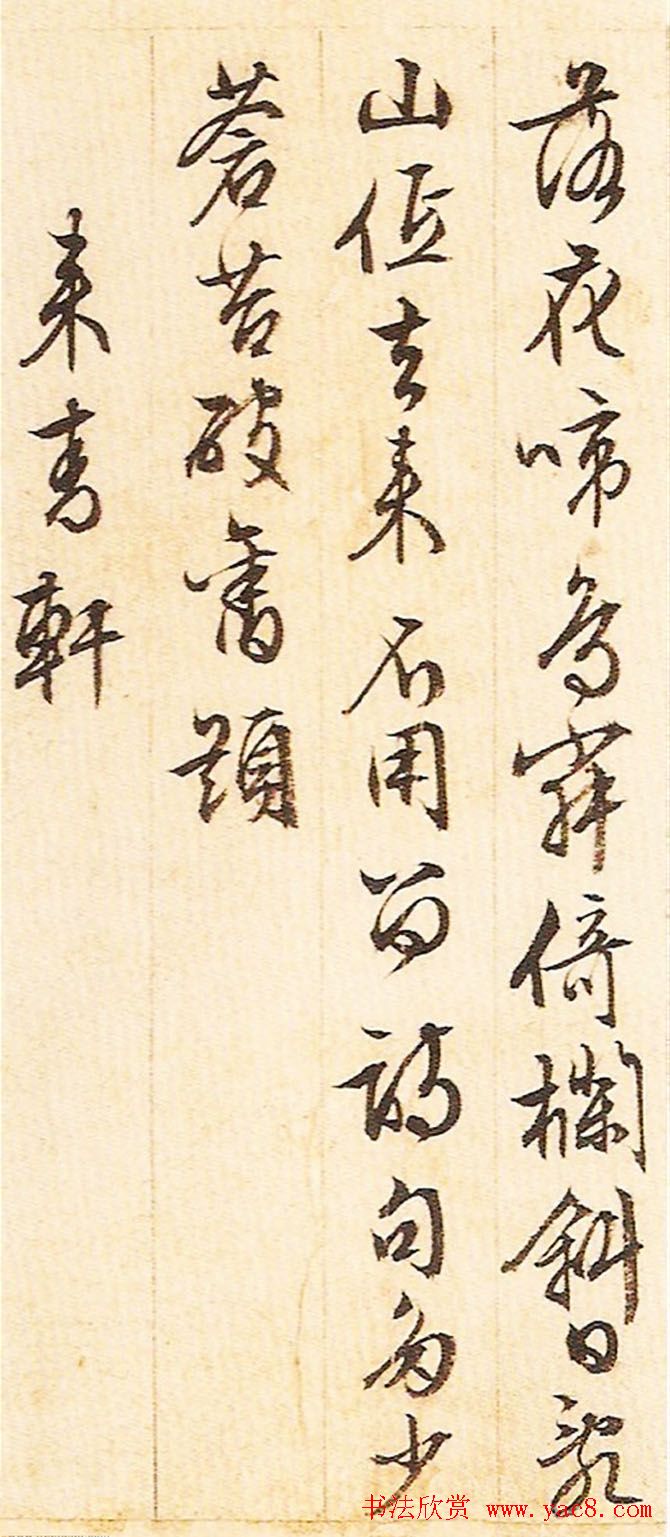 落花啼鳥倚欄斜日亂
山低去來不用留詩句多少
蒼苔破舊題
來青軒
书法欣赏 www.yac8.com